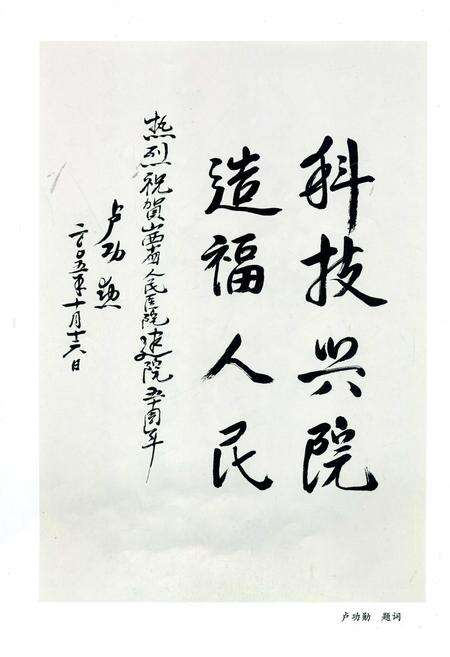 科技兴院
造福人民
热烈祝賀山西省人民医院建院五十周年
卢功勋
二〇〇五年十月十六日
卢功勋 题词